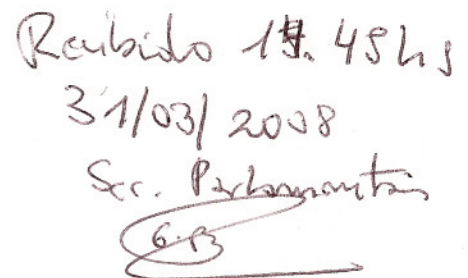 Recibido 17. 45hs
31/03/2008
Sec. Parlamentaria